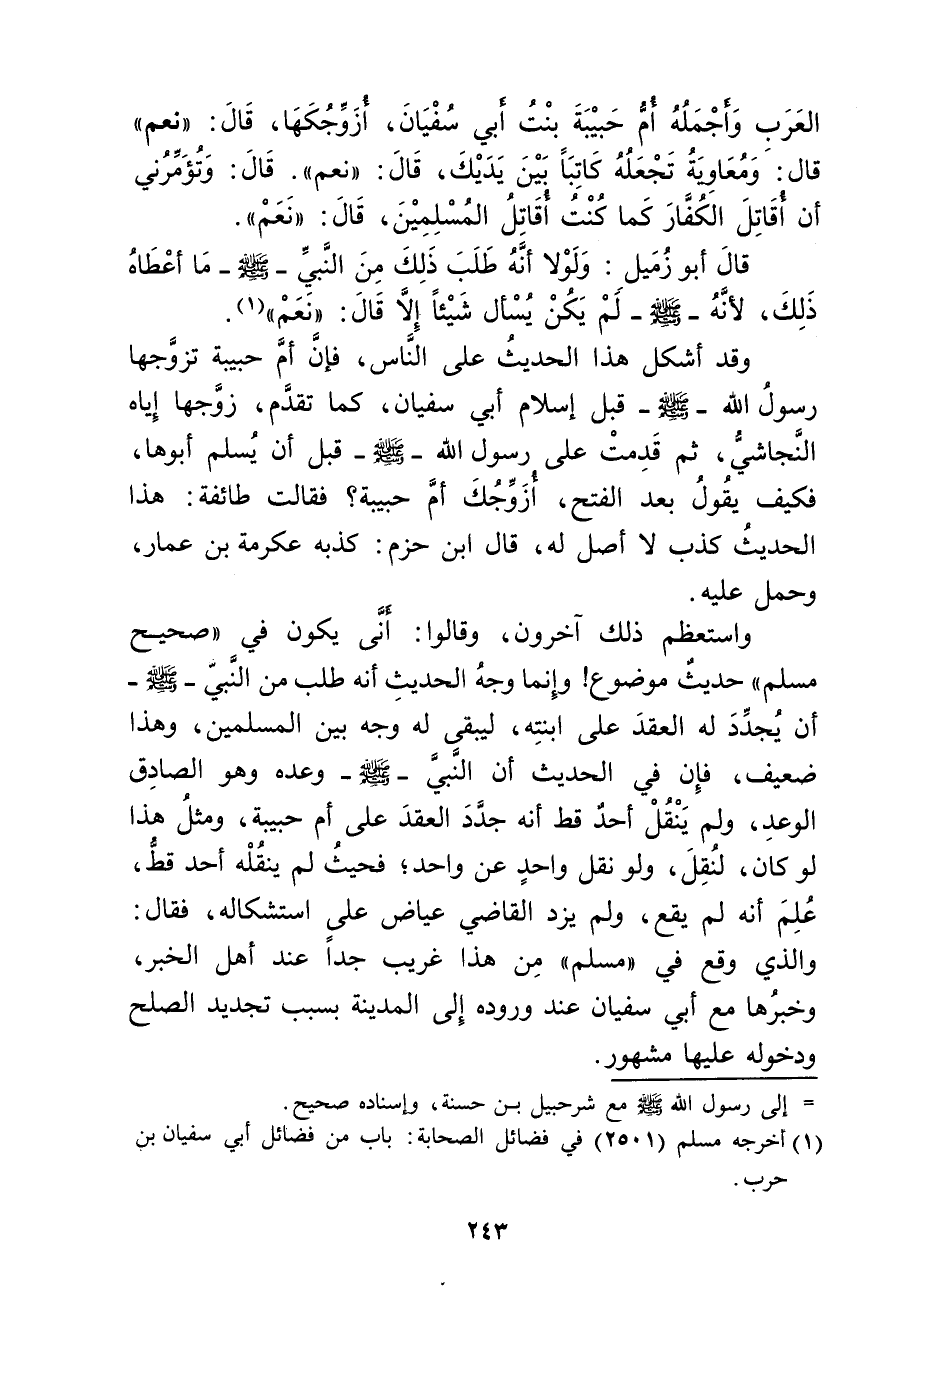 العَرَبِ وَأَجْمَلُهُ أُمُّ حَبِيْبَةَ بِنْتُ أَبي سُفْيَانَ، أُزَوِّجُكَهَا، قَالَ: «نعم»
قال: وَمُعَاوِيَةُ تَجْعَلُهُ كَاتِبَاً بَيْنَ يَدَيْكَ، قَالَ: «نعم». قَالَ: وَتُؤَمِّرُني
أن أُقَاتِلَ الكُفَّارَ كَما كُنْتُ أُقَاتِلُ المُسْلِمِيْنَ، قَالَ: «نَعَمْ».
قالَ أبو زُمَيل: وَلَوْلا أنَّهُ طَلَبَ ذَلِكَ مِنَ النَّبيِّ - ﷺ - مَا أعْطَاهُ
ذَلِكَ، لأنَّهُ - ﷺ - لَمْ يَكُنْ يُسْأل شَيْئاً إلَّا قَالَ: «نَعَمْ»(١).
وقد أشكل هذا الحديثُ على النَّاس، فإنَّ أمَّ حبيبة تزوَّجها
رسولُ الله - ﷺ - قبل إسلام أبي سفيان، كما تقدَّم، زوَّجها إياه
النَّجاشيُّ، ثم قَدِمتْ على رسول الله - ﷺ - قبل أن يُسلم أبوها،
فكيف يقُولُ بعد الفتح، أُزَوِّجُكَ أمَّ حبيبة؟ فقالت طائفة: هذا
الحديثُ كذب لا أصل له، قال ابن حزم: كذبه عكرمة بن عمار،
وحمل عليه.
واستعظم ذلك آخرون، وقالوا: أنَّى يكون في «صحيح
مسلم» حديثٌ موضوع! وإنما وجهُ الحديثِ أنه طلب من النَّبيّ - ﷺ -
أن يُجدِّدَ له العقدَ على ابنتِه، ليبقى له وجه بين المسلمين، وهذا
ضعيف، فإن في الحديث أن النَّبيَّ - ﷺ - وعده وهو الصادِق
الوعدِ، ولم يَنْقُلْ أحدٌ قط أنه جدَّدَ العقدَ على أم حبيبة، ومثلُ هذا
لو كان، لَنُقِلَ، ولو نقل واحدٍ عن واحد؛ فحيثُ لم ينقُلْه أحد قطُّ،
عُلِمَ أنه لم يقع، ولم يزد القاضي عياض على استشكاله، فقال:
والذي وقع في «مسلم» مِن هذا غريب جداً عند أهل الخبر،
وخبرُها مع أبي سفيان عند وروده إلى المدينة بسبب تجديد الصلح
ودخوله عليها مشهور.
= إلى رسول الله ﷺ مع شرحبيل بن حسنة، وإسناده صحيح.
(١) أخرجه مسلم (٢٥٠١) في فضائل الصحابة: باب من فضائل أبي سفيان بن
حرب.
٢٤٣